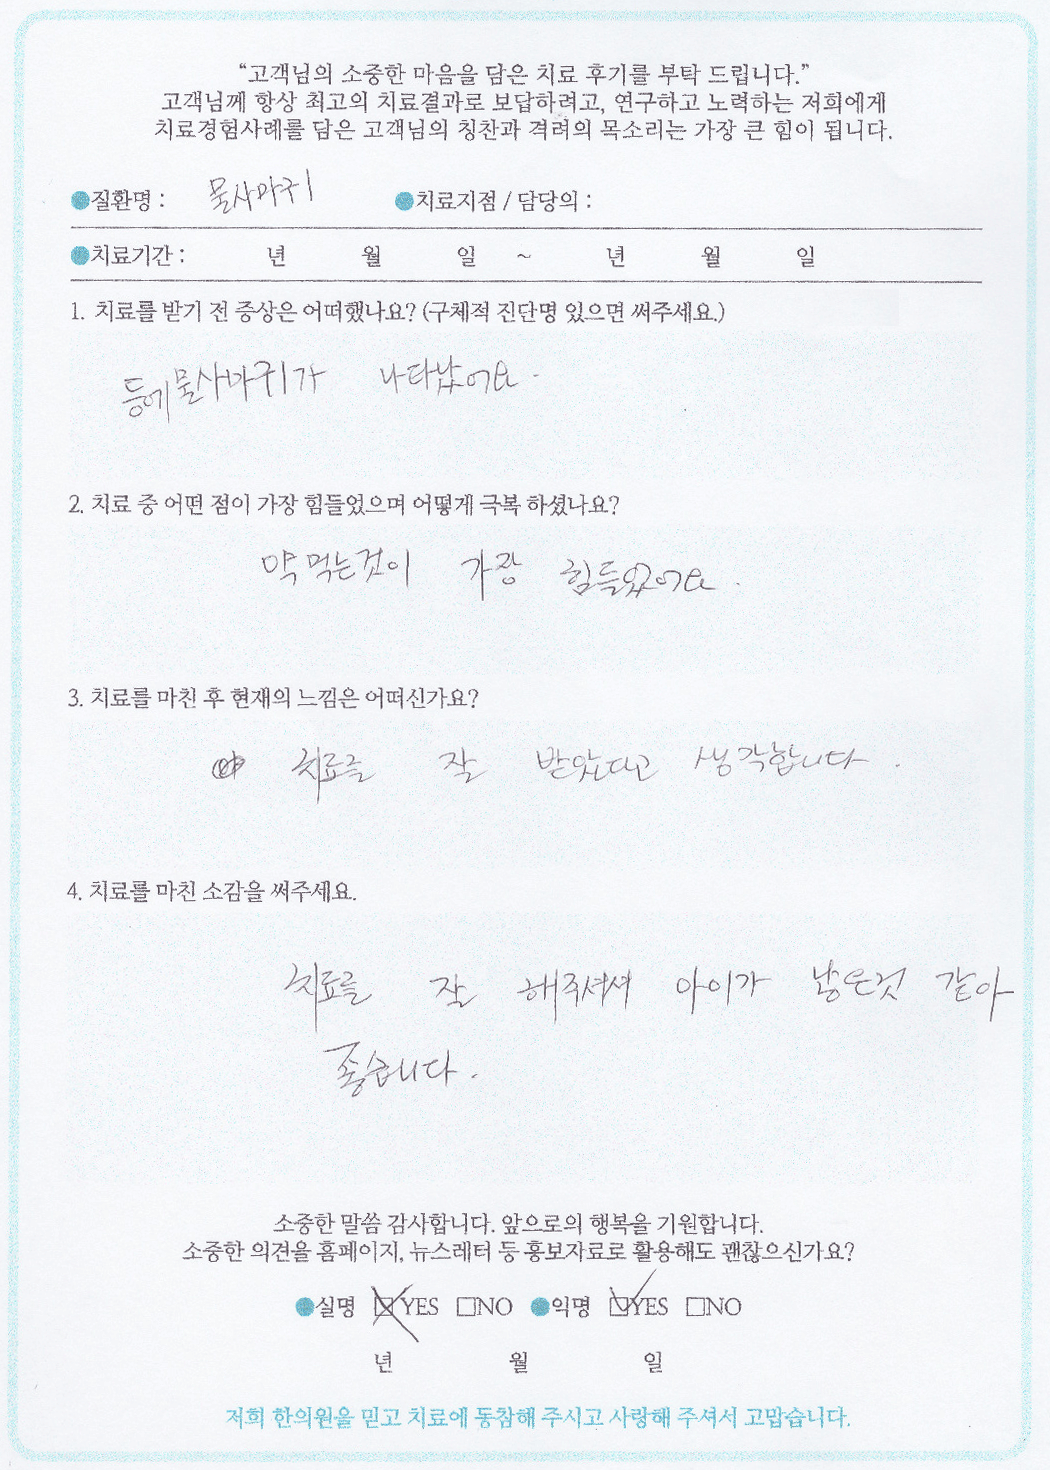 “고객님의 소중한 마음을 담은 치료 후기를 부탁 드립니다.”
고객님께 항상 최고의 치료결과로 보답하려고, 연구하고 노력하는 저희에게
치료경험사례를 담은 고객님의 칭찬과 격려의 목소리는 가장 큰 힘이 됩니다.
●질환명 : 물사마귀 ●치료지점 / 담당의 :
●치료기간 : 년 월 일 ~ 년 월 일
1. 치료를 받기 전 증상은 어떠했나요? (구체적 진단명 있으면 써주세요.)
등에 물사마귀가 나타났어요.
2. 치료 중 어떤 점이 가장 힘들었으며 어떻게 극복 하셨나요?
약 먹는것이 가장 힘들었어요.
3. 치료를 마친 후 현재의 느낌은 어떠신가요?
치료를 잘 받았다고 생각합니다.
4. 치료를 마친 소감을 써주세요.
치료를 잘 해주셔서 아이가 낳은것 같아
좋습니다.
소중한 말씀 감사합니다. 앞으로의 행복을 기원합니다.
소중한 의견을 홈페이지, 뉴스레터 등 홍보자료로 활용해도 괜찮으신가요?
●실명 ☒YES □NO ●익명 ☑YES □NO
년 월 일
저희 한의원을 믿고 치료에 동참해 주시고 사랑해 주셔서 고맙습니다.